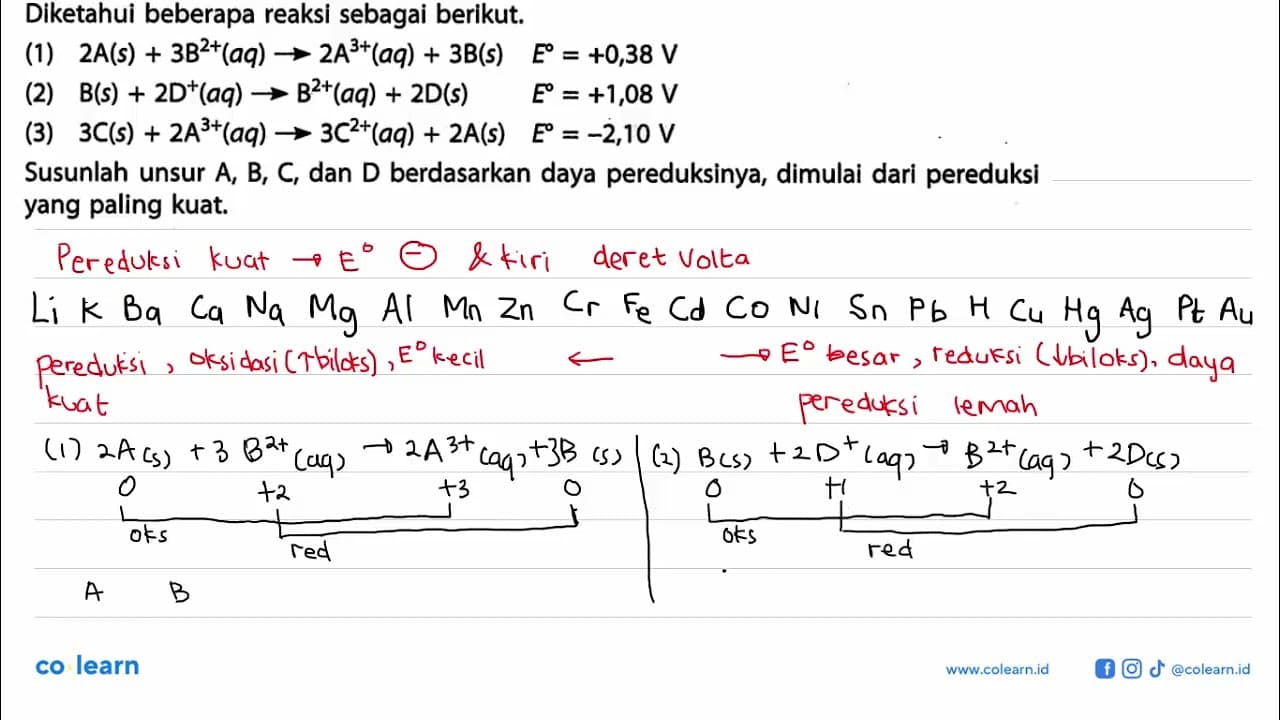 Diketahui beberapa reaksi sebagai berikut.
(1) 2A(s) + 3B²⁺(aq) → 2A³⁺(aq) + 3B(s) E° = +0,38 V
(2) B(s) + 2D⁺(aq) → B²⁺(aq) + 2D(s) E° = +1,08 V
(3) 3C(s) + 2A³⁺(aq) → 3C²⁺(aq) + 2A(s) E° = –2,10 V
Susunlah unsur A, B, C, dan D berdasarkan daya pereduksinya, dimulai dari pereduksi
yang paling kuat.
Pereduksi kuat → E° ⊖ & kiri deret Volta
Li K Ba Ca Na Mg Al Mn Zn Cr Fe Cd Co Ni Sn Pb H Cu Hg Ag Pt Au
pereduksi, oksidasi (↑biloks), E° kecil ← → E° besar, reduksi (↓biloks), daya
kuat pereduksi lemah
(1) 2A(s) + 3B²⁺(aq) → 2A³⁺(aq) + 3B(s) (2) B(s) + 2D⁺(aq) → B²⁺(aq) + 2D(s)
0 +2 +3 0 0 +1 +2 0
oks red oks red
A B
co learn www.colearn.id @colearn.id